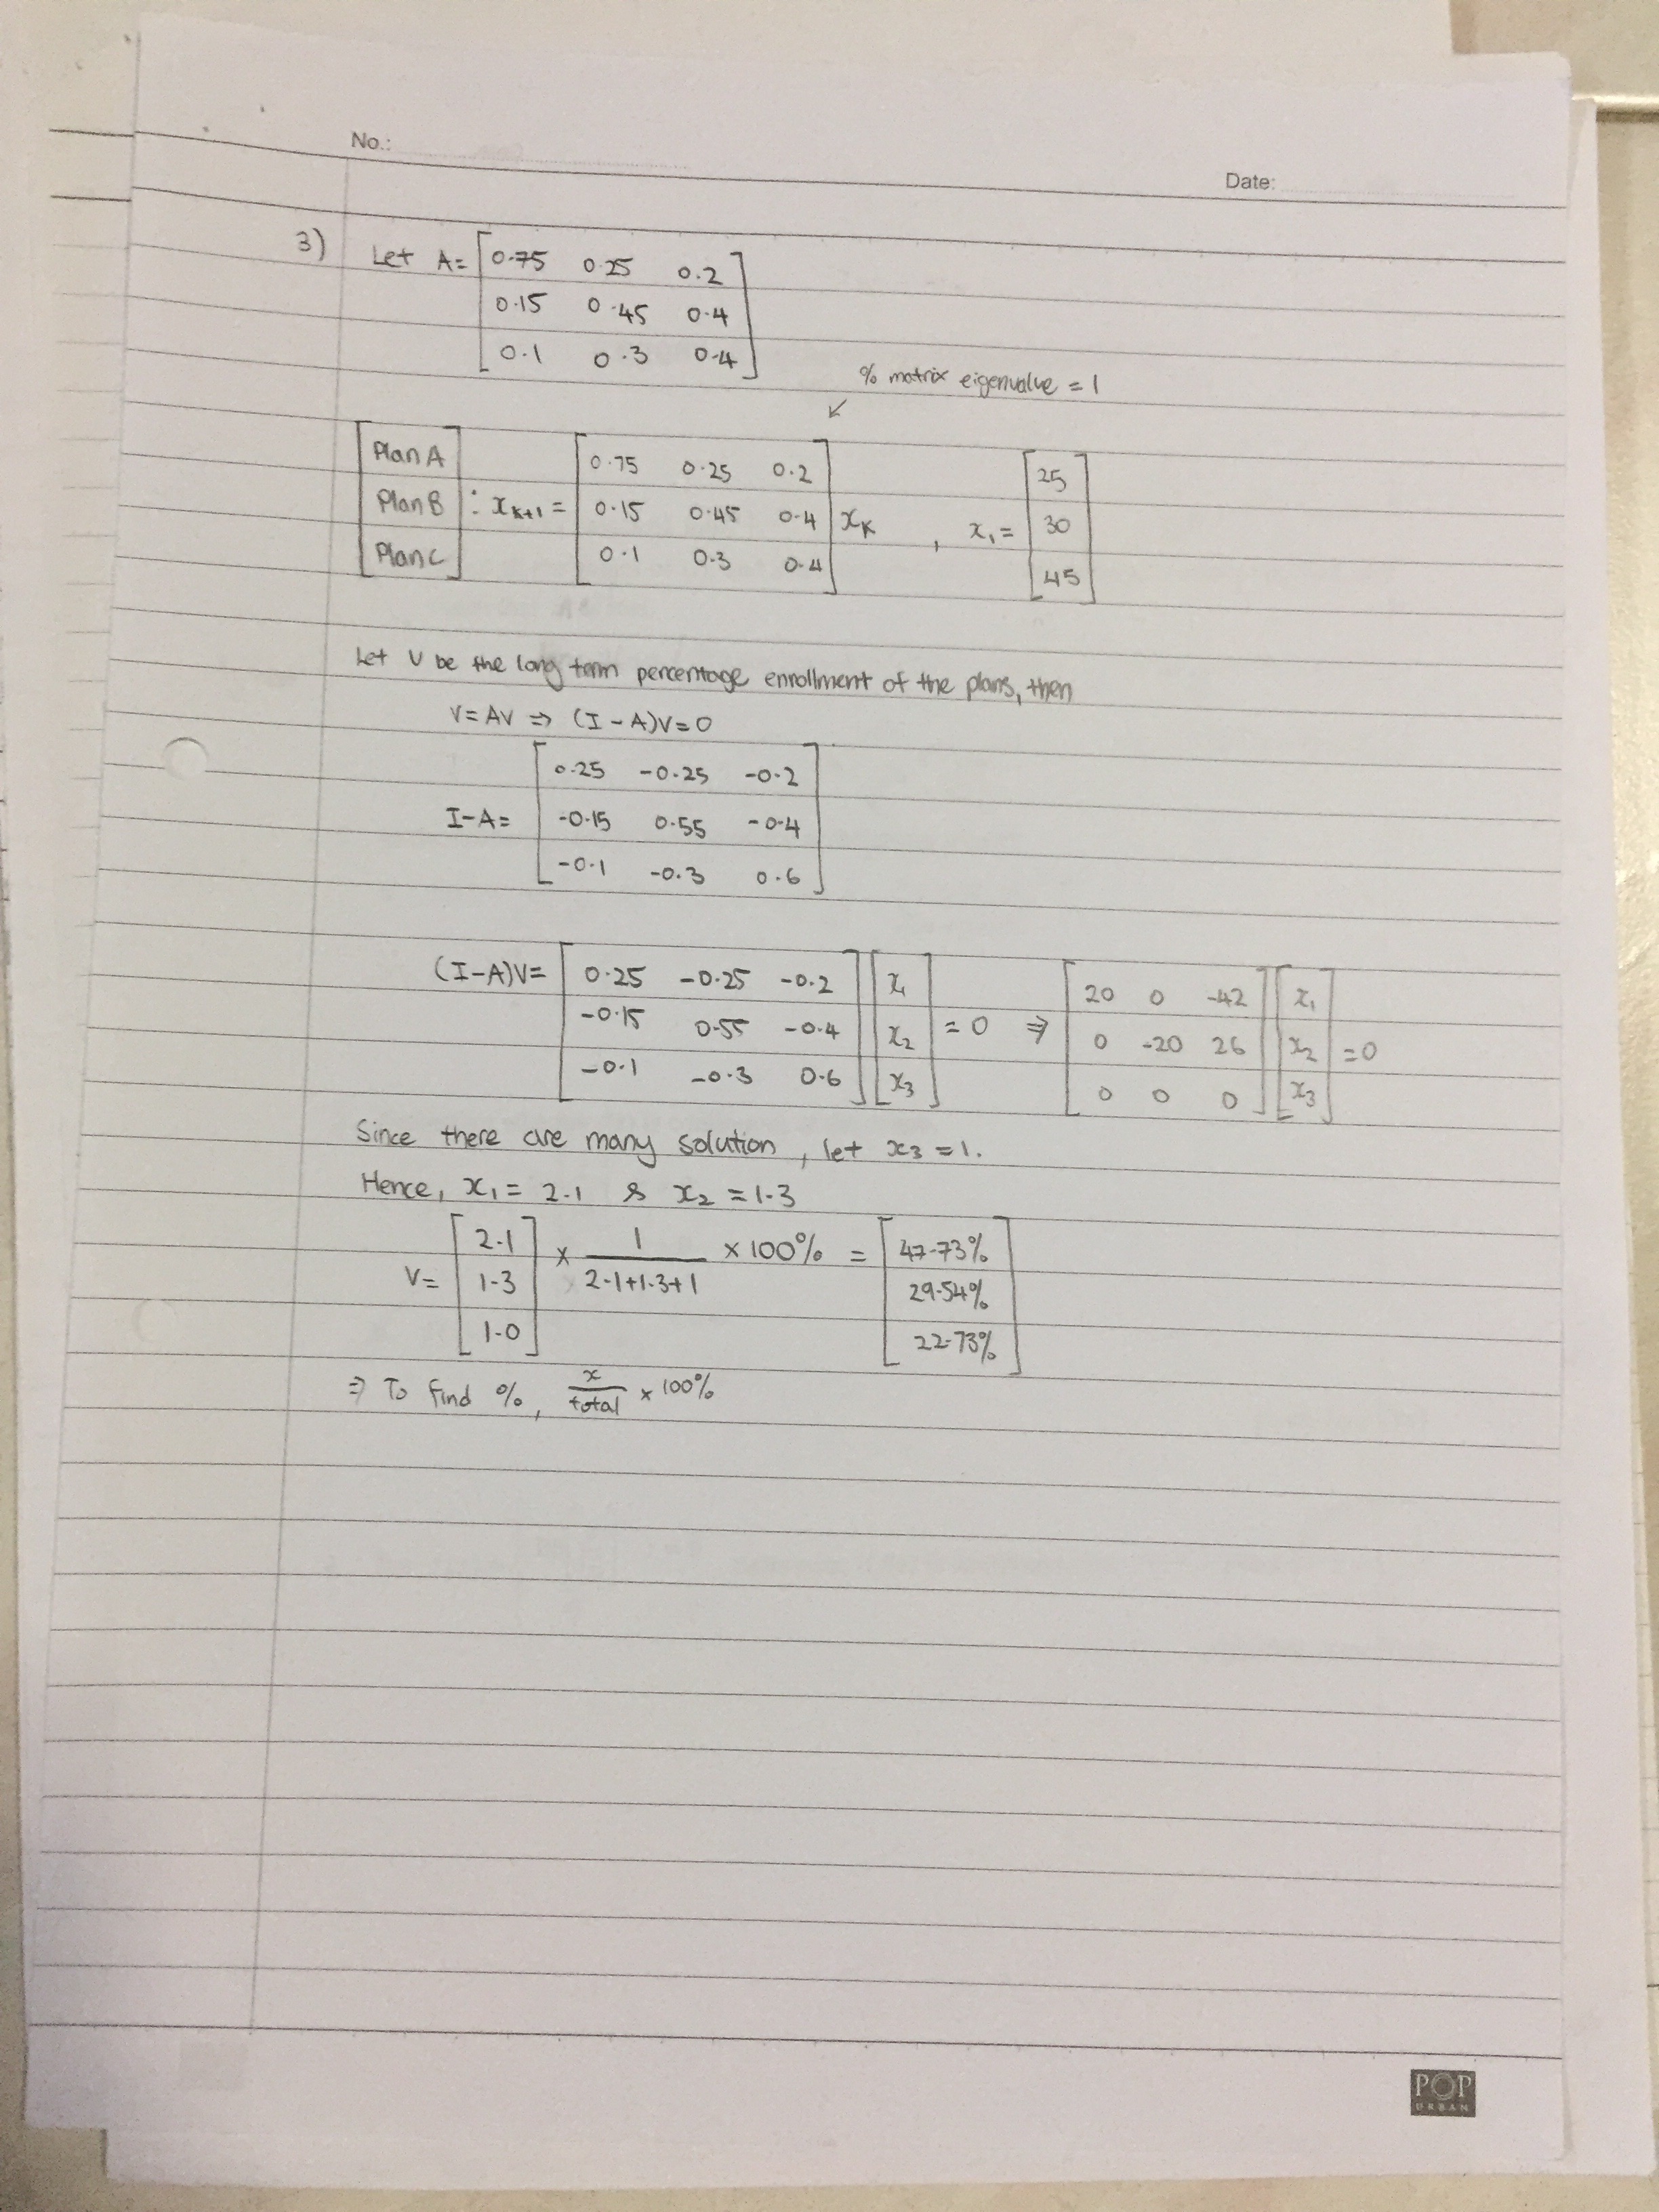 No.:
Date:
3) Let A = [0.75 0.25 0.2
0.15 0.45 0.4
0.1 0.3 0.4]
% matrix eigenvalue = 1
↙
[Plan A
Plan B
Plan C] : x_{k+1} = [0.75 0.25 0.2
0.15 0.45 0.4
0.1 0.3 0.4] x_k , x₁ = [25
30
45]
Let V be the long term percentage enrollment of the plans, then
V = AV ⇒ (I - A)V = 0
I - A = [0.25 -0.25 -0.2
-0.15 0.55 -0.4
-0.1 -0.3 0.6]
(I-A)V = [0.25 -0.25 -0.2
-0.15 0.55 -0.4
-0.1 -0.3 0.6] [x₁
x₂
x₃] = 0 ⇒ [20 0 -42
0 -20 26
0 0 0] [x₁
x₂
x₃] = 0
Since there are many solution, let x₃ = 1.
Hence, x₁ = 2.1 & x₂ = 1.3
V = [2.1
1.3
1.0] × 1/(2.1+1.3+1) × 100% = [47.73%
29.54%
22.73%]
⇒ To find %, x/total × 100%
POP
URBAN